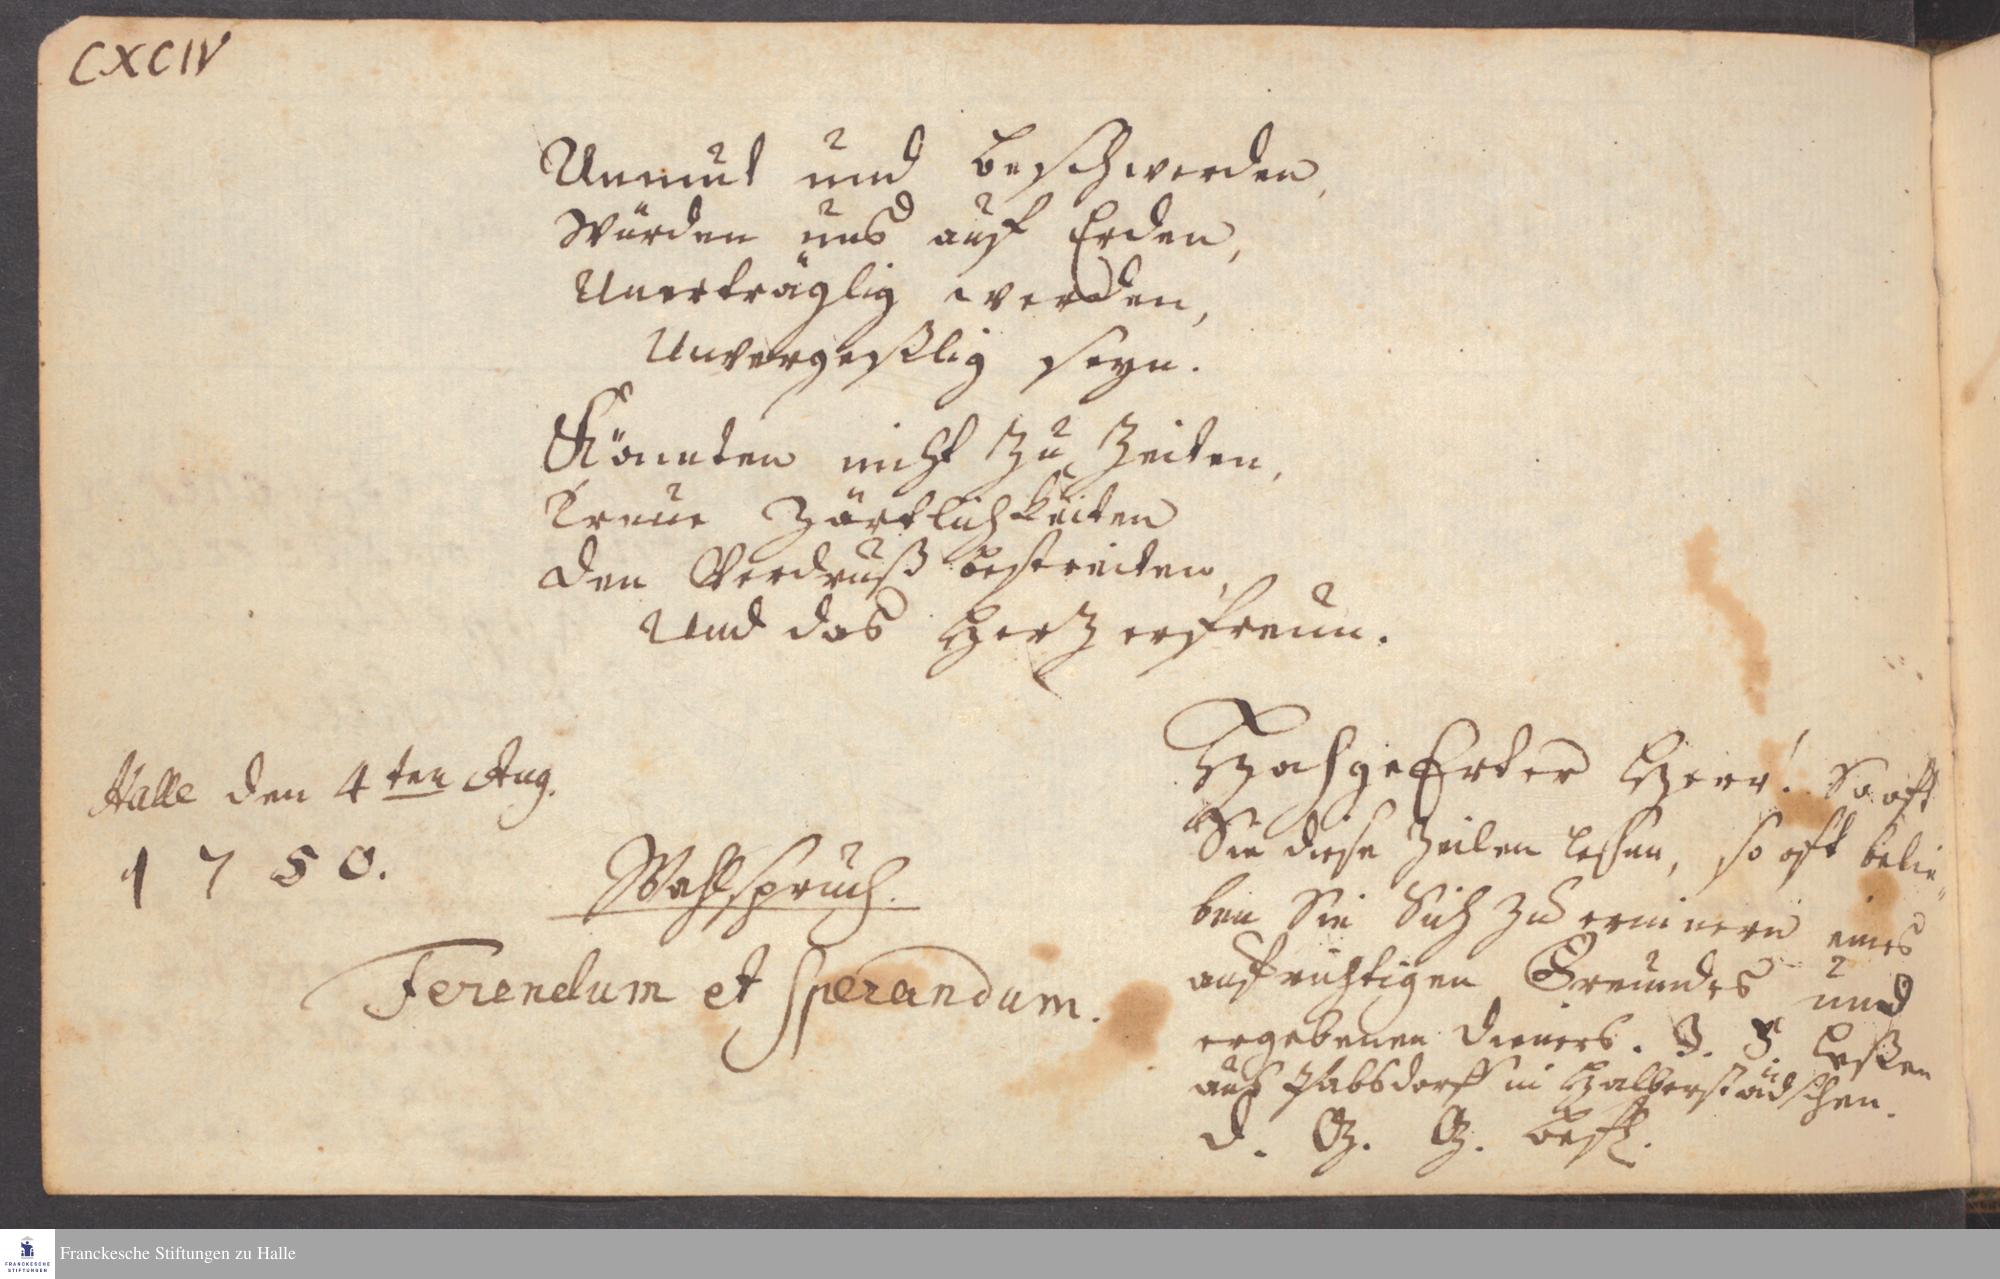 CXCIV
Unmut und beschwerden,
Würden uns auf Erden,
Unerträglig werden,
Unvergeßlig seyn.
Könnten nicht zu Zeiten,
Treue Zärtlichkeiten
den Verdruß bestreiten,
Und das Herz erfreun.
Halle den 4ten Aug.
1750.
Wahlspruch.
Ferendum et Sperandum.
HochgeEhrter Herr! So oft
Sie diese Zeilen lesen, so oft belie-
ben Sie Sich zu erinnern eines
aufrichtigen Freundes und
ergebenen dieners. J. F.
aus Pabsdorff in Halberstädschen.
d. G. G. befl.
FRANCKESCHE
STIFTUNGEN
Franckesche Stiftungen zu Halle